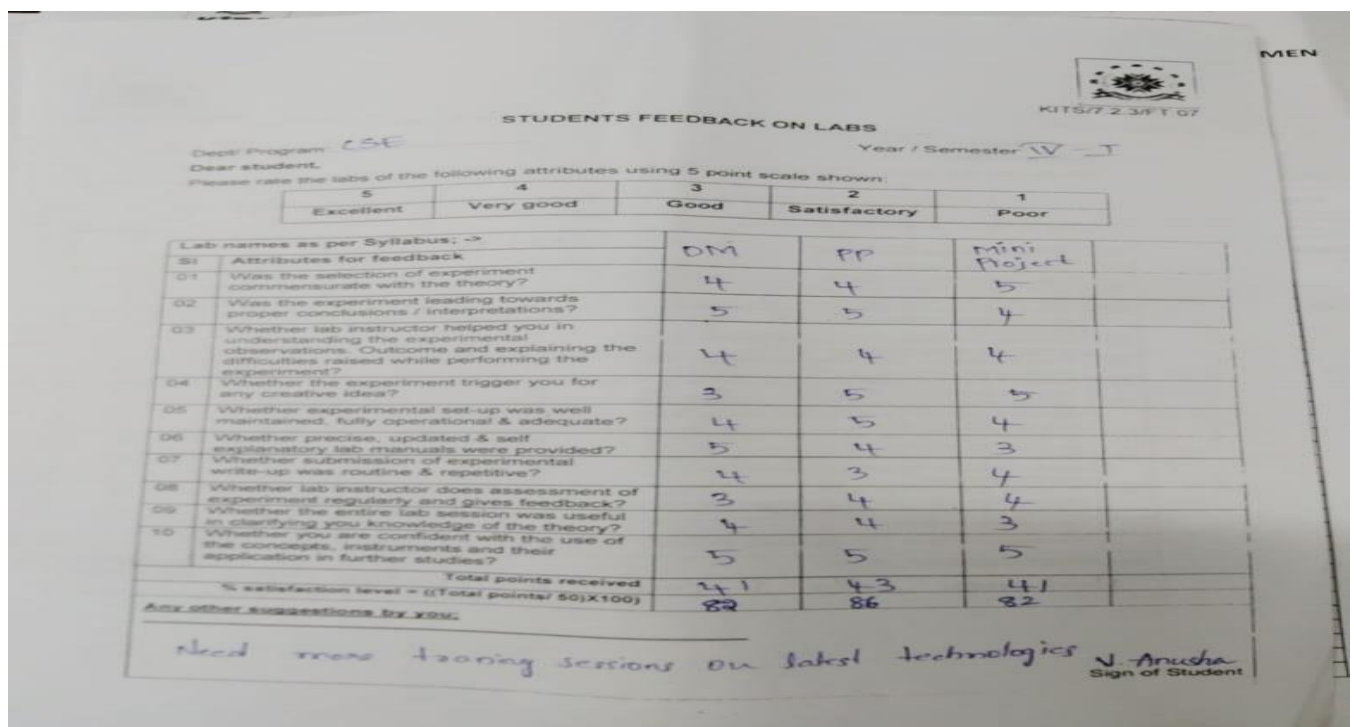 MEN
KITS/7.2.3/FT 07
STUDENTS FEEDBACK ON LABS
Dept/ Program: CSE Year / Semester IV - I
Dear student,
Please rate the labs of the following attributes using 5 point scale shown:
5 4 3 2 1
Excellent Very good Good Satisfactory Poor
Lab names as per Syllabus; -> DM PP Mini Project
Sl Attributes for feedback
01 Was the selection of experiment
commensurate with the theory? 4 4 5
02 Was the experiment leading towards
proper conclusions / interpretations? 5 5 4
03 Whether lab instructor helped you in
understanding the experimental
observations. Outcome and explaining the
difficulties raised while performing the
experiment? 4 4 4
04 Whether the experiment trigger you for
any creative idea? 3 5 5
05 Whether experimental set-up was well
maintained, fully operational & adequate? 4 5 4
06 Whether precise, updated & self
explanatory lab manuals were provided? 5 4 3
07 Whether submission of experimental
write-up was routine & repetitive? 4 3 4
08 Whether lab instructor does assessment of
experiment regularly and gives feedback? 3 4 4
09 Whether the entire lab session was useful
in clarifying you knowledge of the theory? 4 4 3
10 Whether you are confident with the use of
the concepts, instruments and their
application in further studies? 5 5 5
Total points received 41 43 41
% satisfaction level = ((Total points/ 50)X100) 82 86 82
Any other suggestions by you:
Need more traning sessions on latest technologies
V. Anusha
Sign of Student